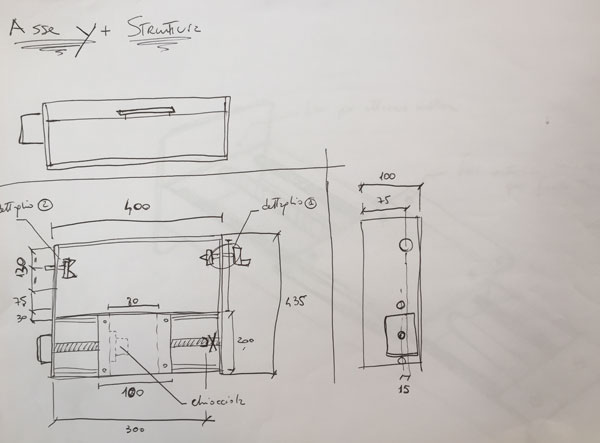 Asse y + Struttura
dettaglio ②
400
dettaglio ①
100
75
130
75
30
80
435
200
100
chiocciola
300
15